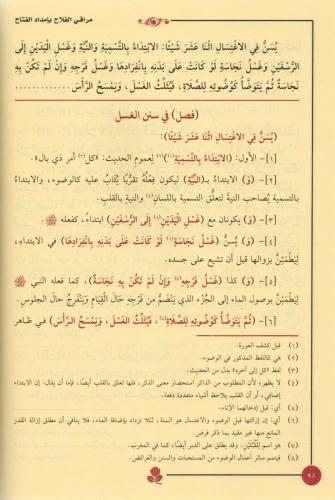 مراقي الفلاح بإمداد الفتاح
يُسَنُّ فِي الاغْتِسَالِ اثْنَا عَشَرَ شَيْئًا: الابْتِدَاءُ بِالتَّسْمِيَةِ وَالنِّيَّةِ وَغَسْلِ الْيَدَيْنِ إِلَى
الرُّسْغَيْنِ وَغَسْلُ نَجَاسَةٍ لَوْ كَانَتْ عَلَى بَدَنِهِ بِانْفِرَادِهَا وَغَسْلُ فَرْجِهِ وَإِنْ لَمْ تَكُنْ بِهِ
نَجَاسَةٌ ثُمَّ يَتَوَضَّأُ كَوُضُوئِهِ لِلصَّلَاةِ، فَيُثَلِّثُ الْغَسْلَ، وَيَمْسَحُ الرَّأْسَ ............
(فصل) في سنن الغسل
(يُسَنُّ فِي الاغْتِسَالِ اثْنَا عَشَرَ شَيْئًا):
[١]- الأول: (الابْتِدَاءُ بِالتَّسْمِيَةِ)(١)(٢) لِعموم الحديث: «كل(٣) أمر ذي بال».
[٢]- (وَ) الابتداء بـ(النِّيَّةِ) ليكون فِعْلُهُ تقرُّبًا يُثابُ عليه كالوضوء، والابتداء
بالتسمية يُصاحب النيةَ لتعلُّق التسمية باللسان(٤) والنية بالقلب.
[٣]- (وَ) يكونان مع (غَسْلِ الْيَدَيْنِ إِلَى الرُّسْغَيْنِ) ابتداءً، كفعله ﷺ.
[٤]- (وَ) يُسَنُّ (غَسْلُ نَجَاسَةٍ(٥) لَوْ كَانَتْ عَلَى بَدَنِهِ بِانْفِرَادِهَا) في الابتداء،
لِيَطْمَئِنَّ بزوالها قبل أن تشيع على جسده.
[٥]- (وَ) كذا (غَسْلُ فَرْجِهِ(٦) وَإِنْ لَمْ تَكُنْ بِهِ نَجَاسَةٌ)، كما فعله النبي ﷺ
لِيَطْمَئِنَّ بوصول الماء إلى الجُزْء الذي يَنْضَمُّ من فَرْجِهِ حَالَ الْقِيَامِ وَيَنْفَرِجُ حالَ الجلوس.
[٦]- (ثُمَّ يَتَوَضَّأُ كَوُضُوئِهِ لِلصَّلَاةِ(٧)، فَيُثَلِّثُ الْغَسْلَ، وَيَمْسَحُ الرَّأْسَ) في ظاهر
(١) قبل كشف العورة.
(٢) هي كاللفظ المذكور في الوضوء.
(٣) لفظ «كل إلى آخره» بدل من الحديث.
(٤) لا يظهر، لأن المطلوب من الذاكر استحضار معنى الذكر، فلها تعلق بالقلب أيضًا، فما فيه أن يقال: إن الابتداء
إضافي، أو أن القلب يلاحظ أشياء متعددة دفعة.
(٥) أي: قبل إدخالهما الإناء.
(٦) أي: إن إزالتها قبل الوضوء والاغتسال هو السنة، لئلا تزداد بإضافة الماء، فلا ينافي أن مطلق إزالة القدر
المانع منها غير مقيد بما ذكر فرض.
(٧) هو اسم لِلْقُبُلَيْنِ، وقد يطلق على الدبر أيضًا، كما في المغرب.
(٨) فيتمم سائر أعمال الوضوء من المستحبات والسنن والفرائض.
٩٨